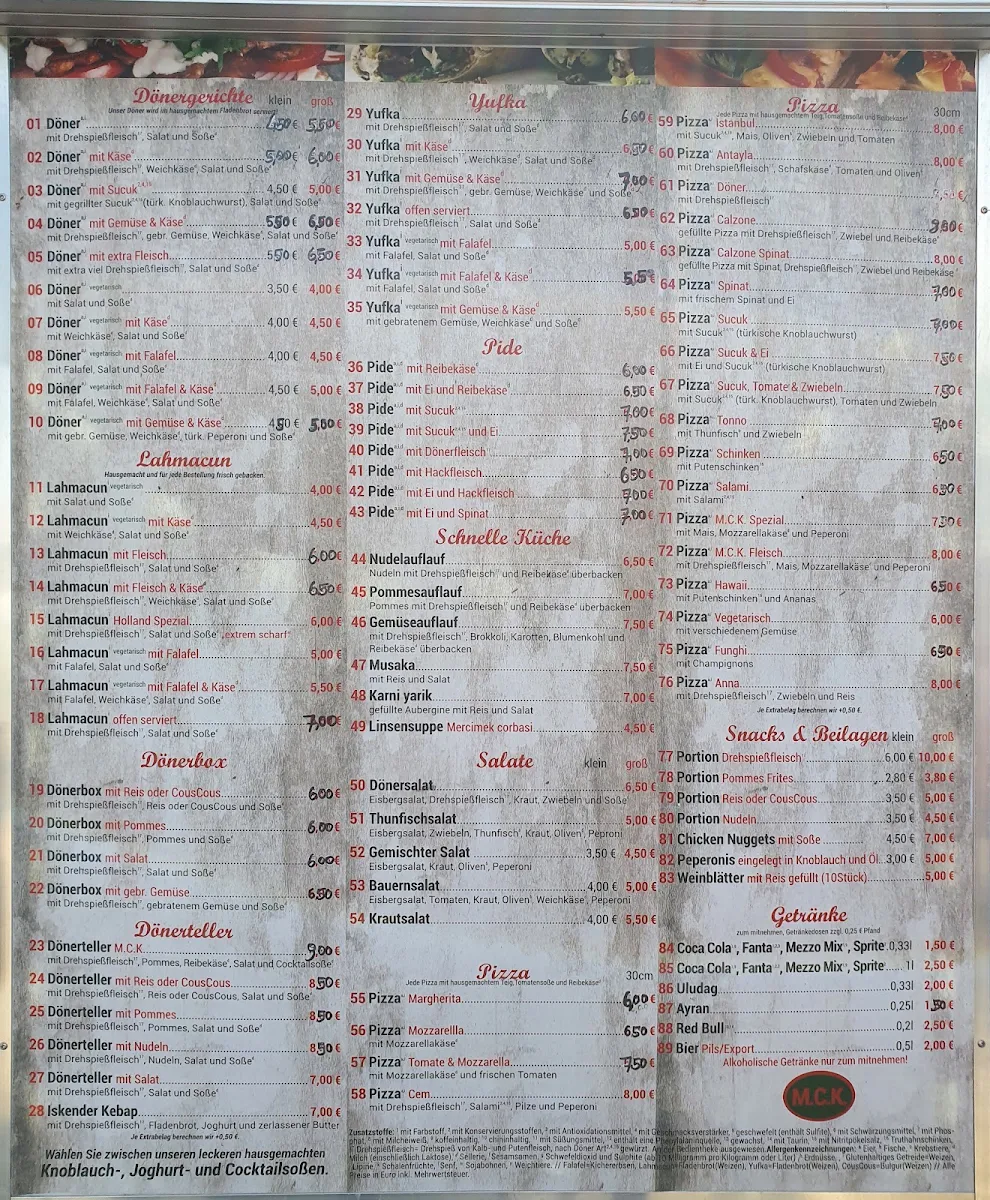 Dönergerichte klein groß
Unser Döner wird im hausgemachtem Fladenbrot serviert!
01 Döner 4,50 € 5,50 €
mit Drehspießfleisch, Salat und Soße
02 Döner mit Käse 5,00 € 6,00 €
mit Drehspießfleisch, Weichkäse, Salat und Soße
03 Döner mit Sucuk 4,50 € 5,00 €
mit gegrillter Sucuk (türk. Knoblauchwurst), Salat und Soße
04 Döner mit Gemüse & Käse 5,50 € 6,50 €
mit Drehspießfleisch, gebr. Gemüse, Weichkäse, Salat und Soße
05 Döner mit extra Fleisch 5,50 € 6,50 €
mit extra viel Drehspießfleisch, Salat und Soße
06 Döner vegetarisch 3,50 € 4,00 €
mit Salat und Soße
07 Döner vegetarisch mit Käse 4,00 € 4,50 €
mit Weichkäse, Salat und Soße
08 Döner vegetarisch mit Falafel 4,00 € 4,50 €
mit Falafel, Salat und Soße
09 Döner vegetarisch mit Falafel & Käse 4,50 € 5,00 €
mit Falafel, Weichkäse, Salat und Soße
10 Döner vegetarisch mit Gemüse & Käse 4,50 € 5,00 €
mit gebr. Gemüse, Weichkäse, türk. Peperoni und Soße
Lahmacun
Hausgemacht und für jede Bestellung frisch gebacken.
11 Lahmacun vegetarisch 4,00 €
mit Salat und Soße
12 Lahmacun vegetarisch mit Käse 4,50 €
mit Weichkäse, Salat und Soße
13 Lahmacun mit Fleisch 6,00 €
mit Drehspießfleisch, Salat und Soße
14 Lahmacun mit Fleisch & Käse 6,50 €
mit Drehspießfleisch, Weichkäse, Salat und Soße
15 Lahmacun Holland Spezial 6,00 €
mit Drehspießfleisch, Salat und Soße „extrem scharf“
16 Lahmacun vegetarisch mit Falafel 5,00 €
mit Falafel, Salat und Soße
17 Lahmacun vegetarisch mit Falafel & Käse 5,50 €
mit Falafel, Weichkäse, Salat und Soße
18 Lahmacun offen serviert 7,00 €
mit Drehspießfleisch, Salat und Soße
Dönerbox
19 Dönerbox mit Reis oder CousCous 6,00 €
mit Drehspießfleisch, Reis oder CousCous und Soße
20 Dönerbox mit Pommes 6,00 €
mit Drehspießfleisch, Pommes und Soße
21 Dönerbox mit Salat 6,00 €
mit Drehspießfleisch, Salat und Soße
22 Dönerbox mit gebr. Gemüse 6,50 €
mit Drehspießfleisch, gebratenem Gemüse und Soße
Dönerteller
23 Dönerteller M.C.K. 9,00 €
mit Drehspießfleisch, Pommes, Reibekäse, Salat und Cocktailsoße
24 Dönerteller mit Reis oder CousCous 8,50 €
mit Drehspießfleisch, Reis oder CousCous, Salat und Soße
25 Dönerteller mit Pommes 8,50 €
mit Drehspießfleisch, Pommes, Salat und Soße
26 Dönerteller mit Nudeln 8,50 €
mit Drehspießfleisch, Nudeln, Salat und Soße
27 Dönerteller mit Salat 7,00 €
mit Drehspießfleisch, Salat und Soße
28 Iskender Kebap 7,00 €
mit Drehspießfleisch, Fladenbrot, Joghurt und zerlassener Butter
Je Extrabelag berechnen wir +0,50 €.
Wählen Sie zwischen unseren leckeren hausgemachten
Knoblauch-, Joghurt- und Cocktailsoßen.
Yufka
29 Yufka 6,00 €
mit Drehspießfleisch, Salat und Soße
30 Yufka mit Käse 6,50 €
mit Drehspießfleisch, Weichkäse, Salat und Soße
31 Yufka mit Gemüse & Käse 7,00 €
mit Drehspießfleisch, gebr. Gemüse, Weichkäse und Soße
32 Yufka offen serviert 6,50 €
mit Drehspießfleisch, Salat und Soße
33 Yufka vegetarisch mit Falafel 5,00 €
mit Falafel, Salat und Soße
34 Yufka vegetarisch mit Falafel & Käse
mit Falafel, Salat und Soße
35 Yufka vegetarisch mit Gemüse & Käse 5,50 €
mit gebratenem Gemüse, Weichkäse und Soße
Pide
36 Pide mit Reibekäse 6,00 €
37 Pide mit Ei und Reibekäse 6,50 €
38 Pide mit Sucuk 7,00 €
39 Pide mit Sucuk und Ei 7,50 €
40 Pide mit Dönerfleisch 7,00 €
41 Pide mit Hackfleisch 6,50 €
42 Pide mit Ei und Hackfleisch 7,00 €
43 Pide mit Ei und Spinat 7,00 €
Schnelle Küche
44 Nudelauflauf 6,50 €
Nudeln mit Drehspießfleisch und Reibekäse überbacken
45 Pommesauflauf 7,00 €
Pommes mit Drehspießfleisch und Reibekäse überbacken
46 Gemüseauflauf 7,50 €
mit Drehspießfleisch, Brokkoli, Karotten, Blumenkohl und
Reibekäse überbacken
47 Musaka 7,50 €
mit Reis und Salat
48 Karni yarik 7,00 €
gefüllte Aubergine mit Reis und Salat
49 Linsensuppe Mercimek corbasi 4,50 €
Salate klein groß
50 Dönersalat 6,50 €
Eisbergsalat, Drehspießfleisch, Kraut, Zwiebeln und Soße
51 Thunfischsalat 5,00 €
Eisbergsalat, Zwiebeln, Thunfisch, Kraut, Oliven, Peproni
52 Gemischter Salat 3,50 € 4,50 €
Eisbergsalat, Kraut, Oliven, Peperoni
53 Bauernsalat 4,00 € 5,00 €
Eisbergsalat, Tomaten, Kraut, Oliven, Weichkäse, Peperoni
54 Krautsalat 4,00 € 5,50 €
Pizza 30cm
Jede Pizza mit hausgemachtem Teig, Tomatensoße und Reibekäse
55 Pizza Margherita 6,00 €
56 Pizza Mozzarellla 6,50 €
mit Mozzarellakäse
57 Pizza Tomate & Mozzarella 7,50 €
mit Mozzarellakäse und frischen Tomaten
58 Pizza Cem 8,00 €
mit Drehspießfleisch, Salami, Pilze und Peperoni
Pizza 30cm
Jede Pizza mit hausgemachtem Teig, Tomatensoße und Reibekäse
59 Pizza Istanbul 8,00 €
mit Sucuk, Mais, Oliven, Zwiebeln und Tomaten
60 Pizza Antayla 8,00 €
mit Drehspießfleisch, Schafskäse, Tomaten und Oliven
61 Pizza Döner
mit Drehspießfleisch
62 Pizza Calzone
gefüllte Pizza mit Drehspießfleisch, Zwiebel und Reibekäse
63 Pizza Calzone Spinat 8,00 €
gefüllte Pizza mit Spinat, Drehspießfleisch, Zwiebel und Reibekäse
64 Pizza Spinat 7,00 €
mit frischem Spinat und Ei
65 Pizza Sucuk 7,00 €
mit Sucuk (türkische Knoblauchwurst)
66 Pizza Sucuk & Ei 7,50 €
mit Ei und Sucuk (türkische Knoblauchwurst)
67 Pizza Sucuk, Tomate & Zwiebeln 7,50 €
mit Sucuk (türk. Knoblauchwurst), Tomaten und Zwiebeln
68 Pizza Tonno 7,00 €
mit Thunfisch und Zwiebeln
69 Pizza Schinken 6,50 €
mit Putenschinken
70 Pizza Salami 6,50 €
mit Salami
71 Pizza M.C.K. Spezial 7,50 €
mit Mais, Mozzarellakäse und Peperoni
72 Pizza M.C.K. Fleisch 8,00 €
mit Drehspießfleisch, Mais, Mozzarellakäse und Peperoni
73 Pizza Hawaii 6,50 €
mit Putenschinken und Ananas
74 Pizza Vegetarisch 6,00 €
mit verschiedenem Gemüse
75 Pizza Funghi 6,50 €
mit Champignons
76 Pizza Anna 8,00 €
mit Drehspießfleisch, Zwiebeln und Reis
Je Extrabelag berechnen wir +0,50 €.
Snacks & Beilagen klein groß
77 Portion Drehspießfleisch 6,00 € 10,00 €
78 Portion Pommes Frites 2,80 € 3,80 €
79 Portion Reis oder CousCous 3,50 € 5,00 €
80 Portion Nudeln 3,50 € 4,50 €
81 Chicken Nuggets mit Soße 4,50 € 7,00 €
82 Peperonis eingelegt in Knoblauch und Öl 3,00 € 5,00 €
83 Weinblätter mit Reis gefüllt (10Stück) 5,00 €
Getränke
zum mitnehmen, Getränkedosen zzgl. 0,25 € Pfand
84 Coca Cola, Fanta, Mezzo Mix, Sprite 0,33l 1,50 €
85 Coca Cola, Fanta, Mezzo Mix, Sprite 1l 2,50 €
86 Uludag 0,33l 2,00 €
87 Ayran 0,25l 1,50 €
88 Red Bull 0,2l 2,50 €
89 Bier Pils/Export 0,5l 2,00 €
Alkoholische Getränke nur zum mitnehmen!
M.C.K.